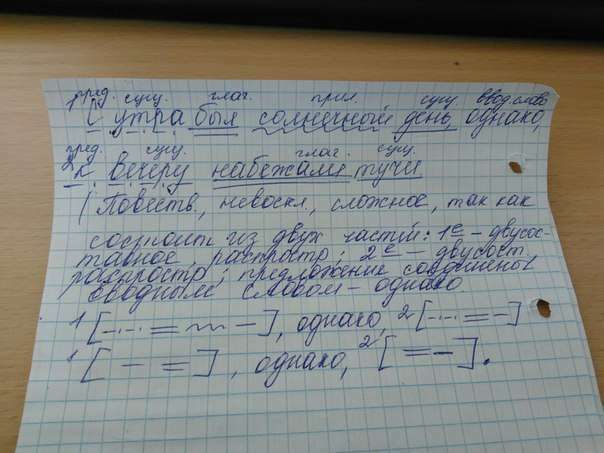 пред. сущ. глаг. прил. сущ ввод.слово
1 С утра был солнечный день, однако,
пред. сущ. глаг. сущ.
2 к вечеру набежали тучи
(Повеств, невоскл, сложное, так как
состоит из двух частей: 1е - двусос-
тавное, распростр; 2е - двусост,
распростр; предложение соединены
вводным словом - однако
1 [-·-·= ~~ -], однако, 2 [-·-·= -]
1 [ - = ] , однако, 2 [ = - ] .